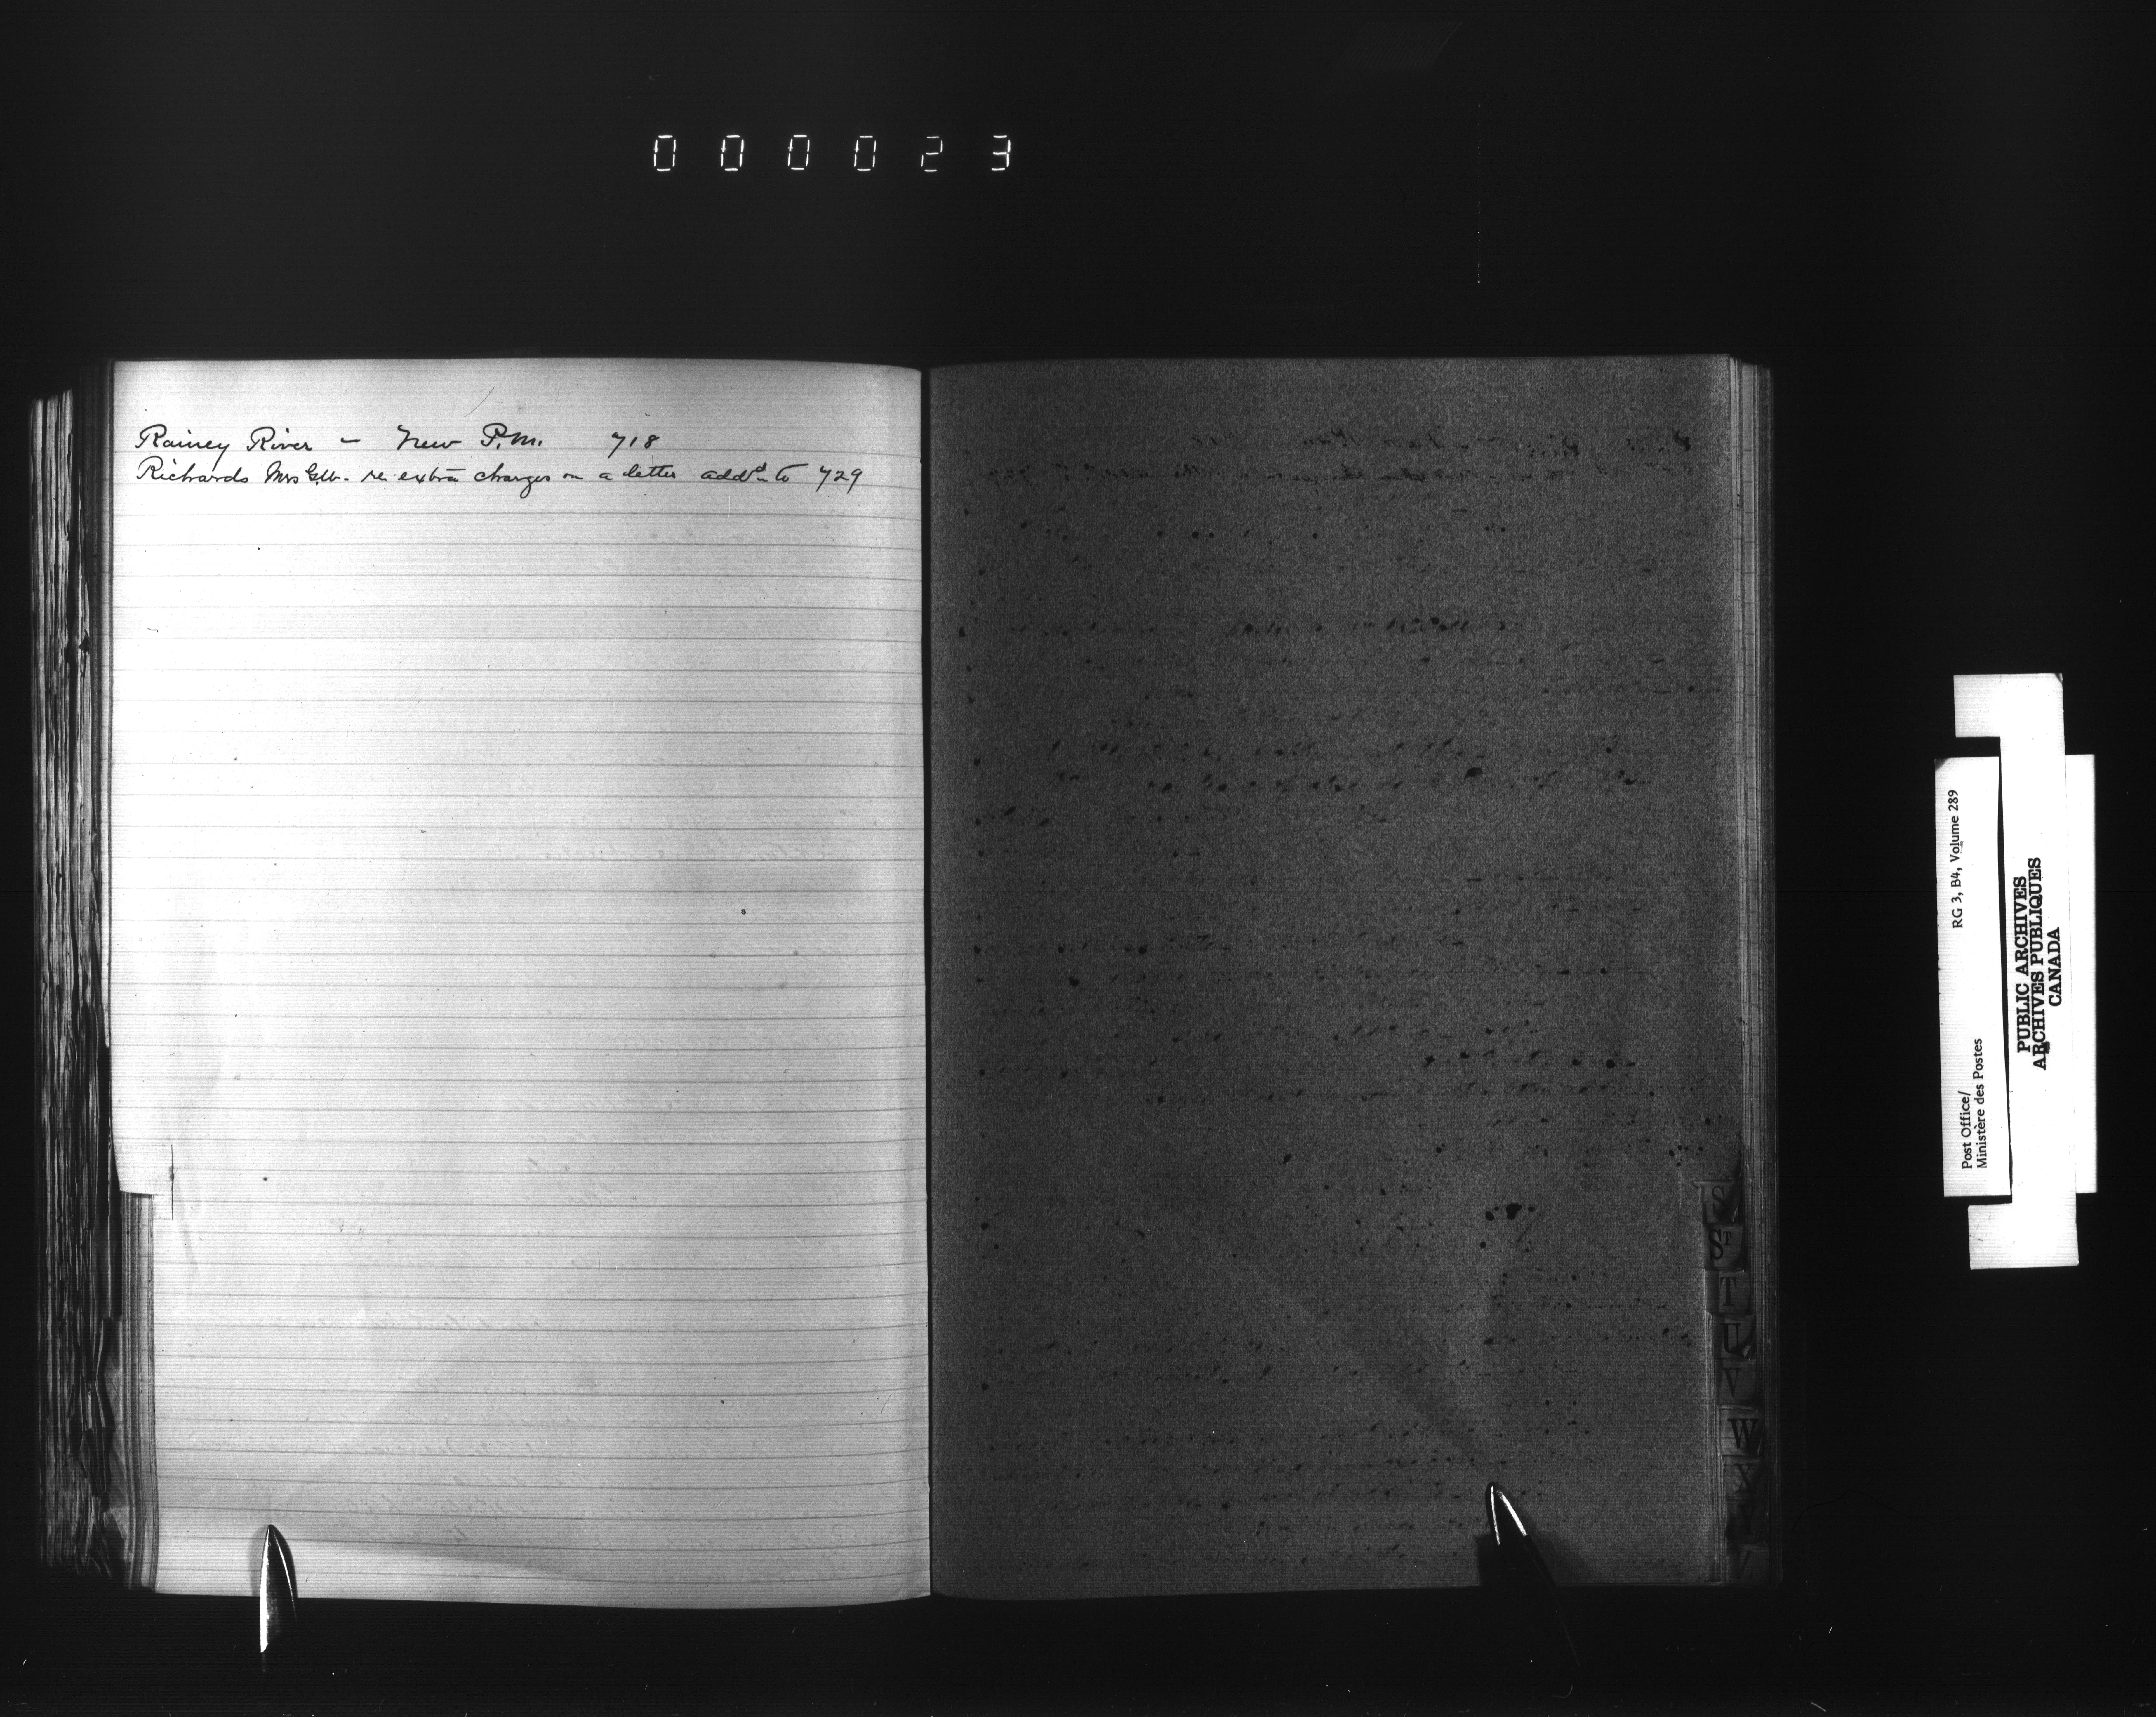 000023
Rainey River — New P.M. 718
Richards Mrs G.W. re extra charges on a letter addd to 729
S
ST
T
U
V
W
X
Y
Post Office/
Ministère des Postes
RG 3, B4, Volume 289
PUBLIC ARCHIVES
ARCHIVES PUBLIQUES
CANADA